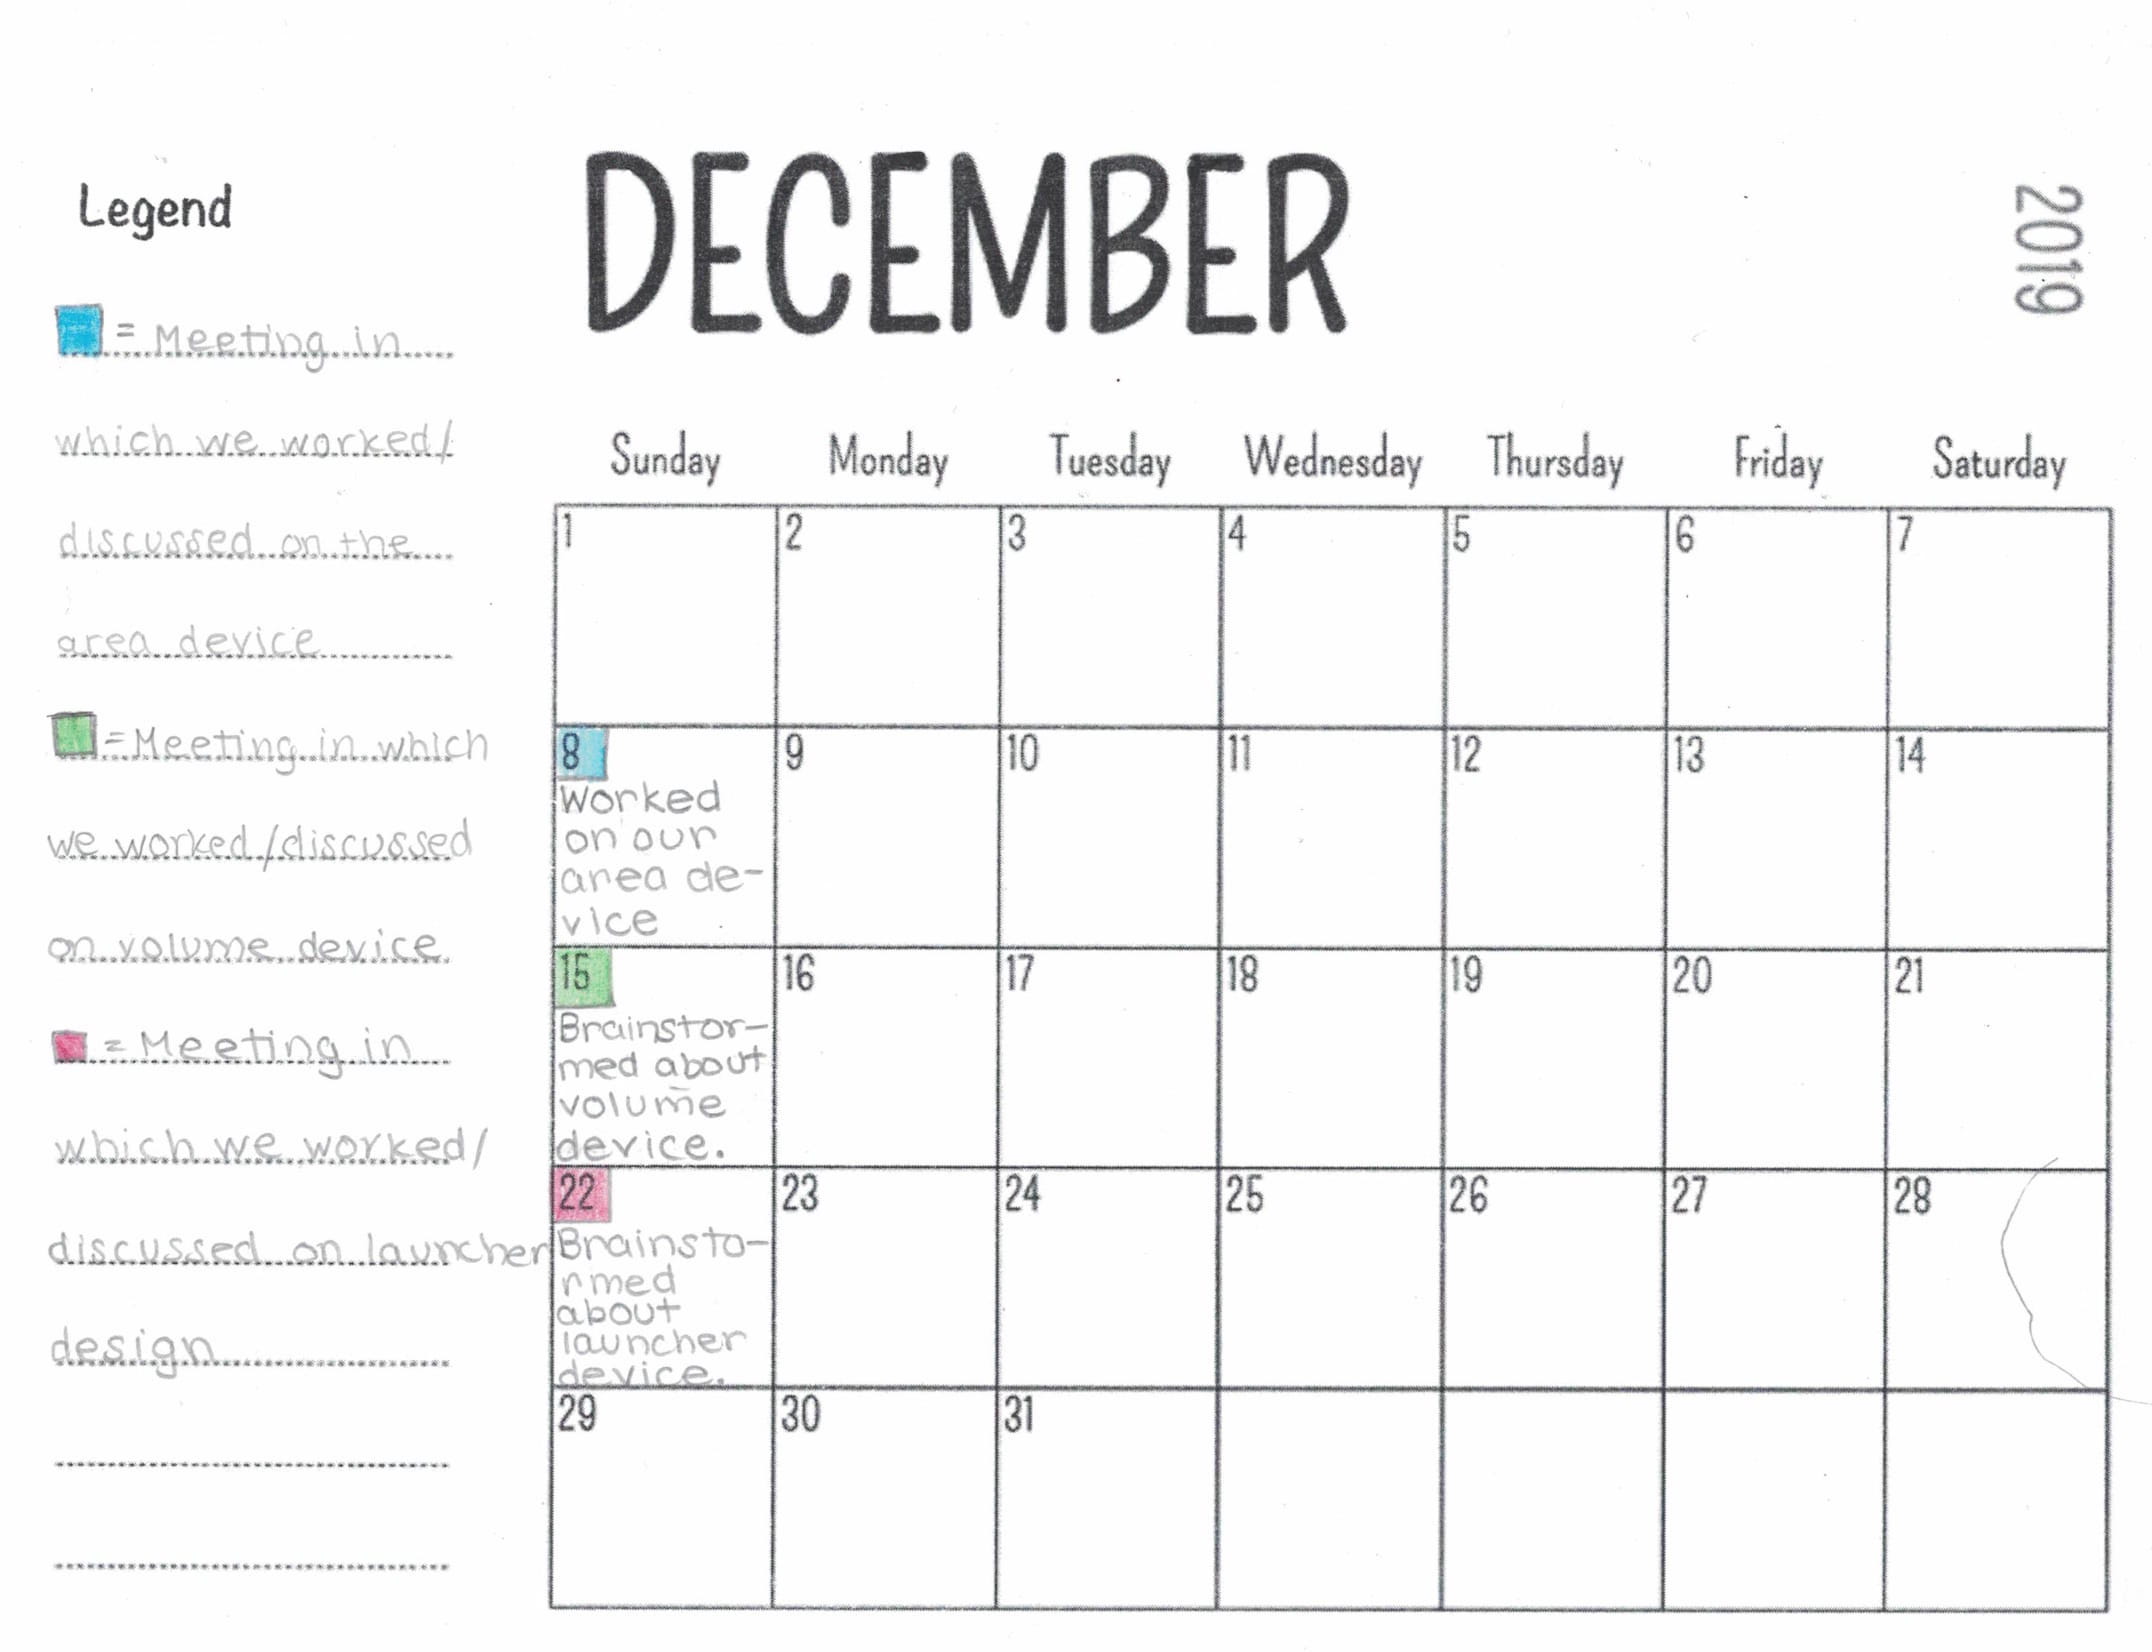 Legend
= Meeting in
which we worked/
discussed on the
area device
= Meeting in which
we worked/discussed
on volume device
= Meeting in
which we worked/
discussed on launcher
design
DECEMBER
2019
Sunday Monday Tuesday Wednesday Thursday Friday Saturday
1 2 3 4 5 6 7
8 9 10 11 12 13 14
Worked
on our
area de-
vice
15 16 17 18 19 20 21
Brainstor-
med about
volume
device.
22 23 24 25 26 27 28
Brainsto-
rmed
about
launcher
device.
29 30 31